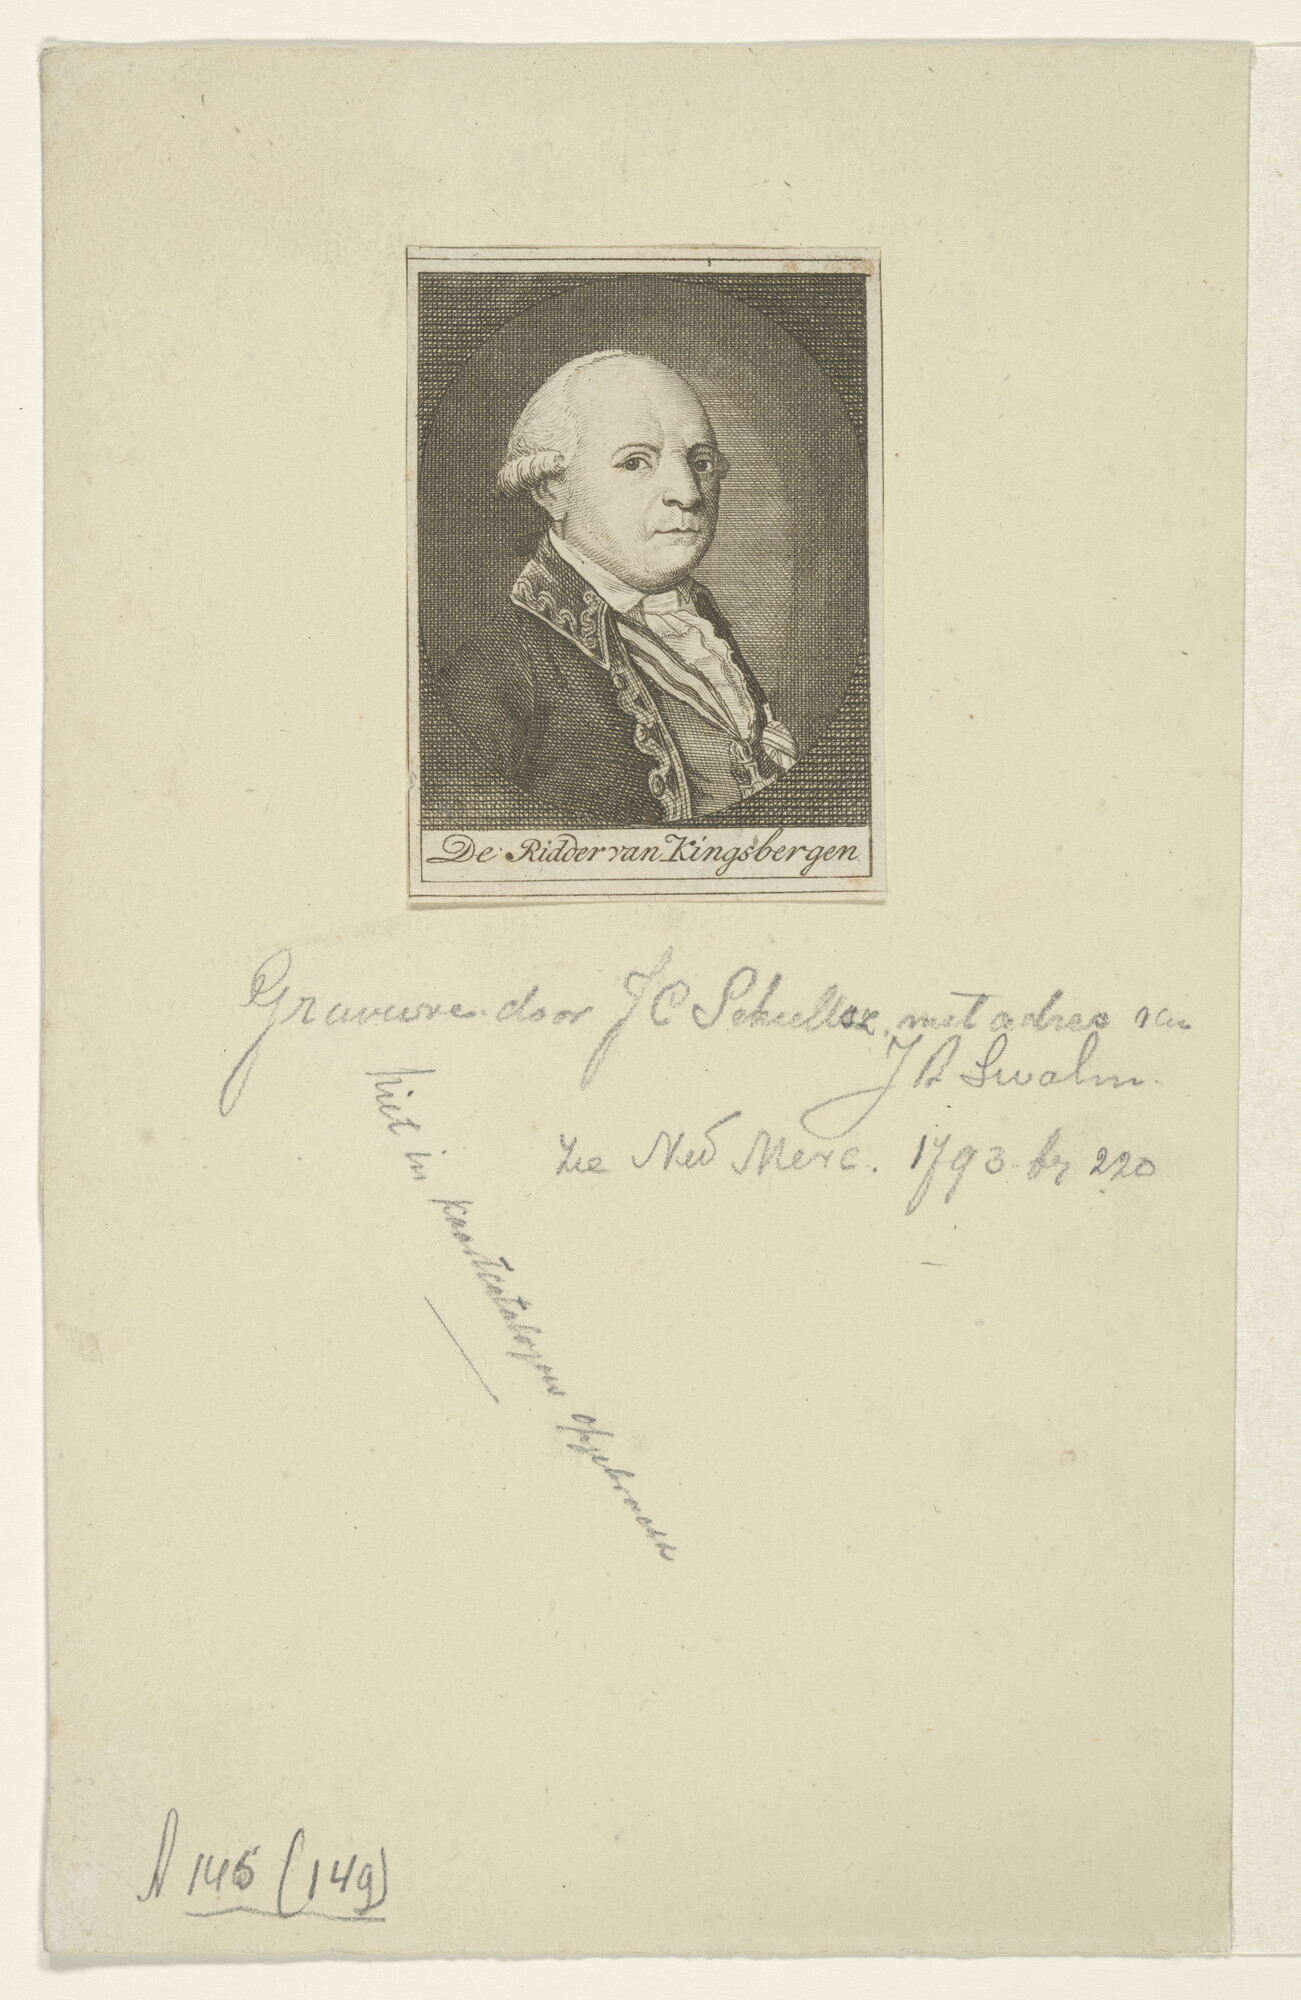 De Ridder van Kingsbergen.
Gravure door J C Schultsz. met adres van
J A Swalm.
zie Ned Merc. 1793 bz 220
Niet in kaartcatalogus opgebracht
A 145 (149)